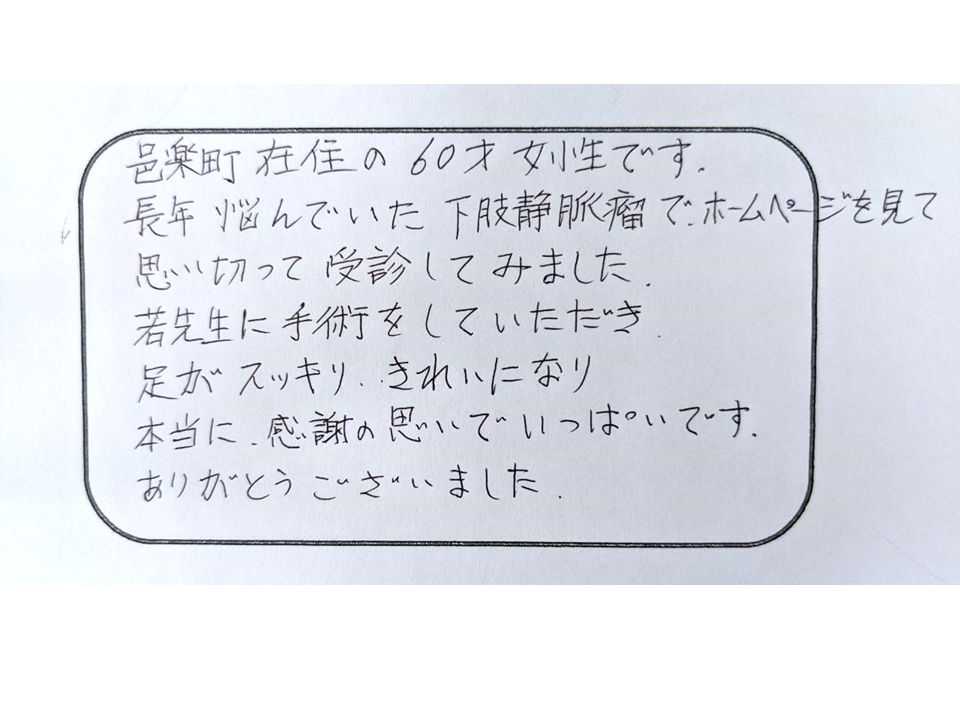 邑楽町在住の60才女性です.
長年悩んでいた下肢静脈瘤で.ホームページを見て
思い切って受診してみました.
若先生に手術をしていただき.
足がスッキリ..きれいになり
本当に.感謝の思いでいっぱいです.
ありがとうございました.